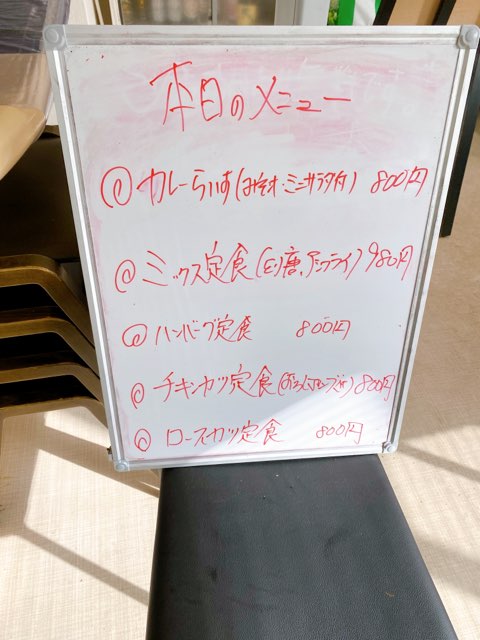 本日のメニュー
カレーらいす(みそ汁・ミニサラダ付) 800円
ミックス定食(とり唐、アジフライ) 980円
ハンバーグ定食 800円
チキンカツ定食 800円
ロースカツ定食 800円